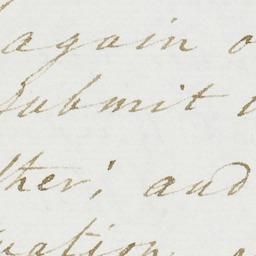 again o
submit
ther; and
uation